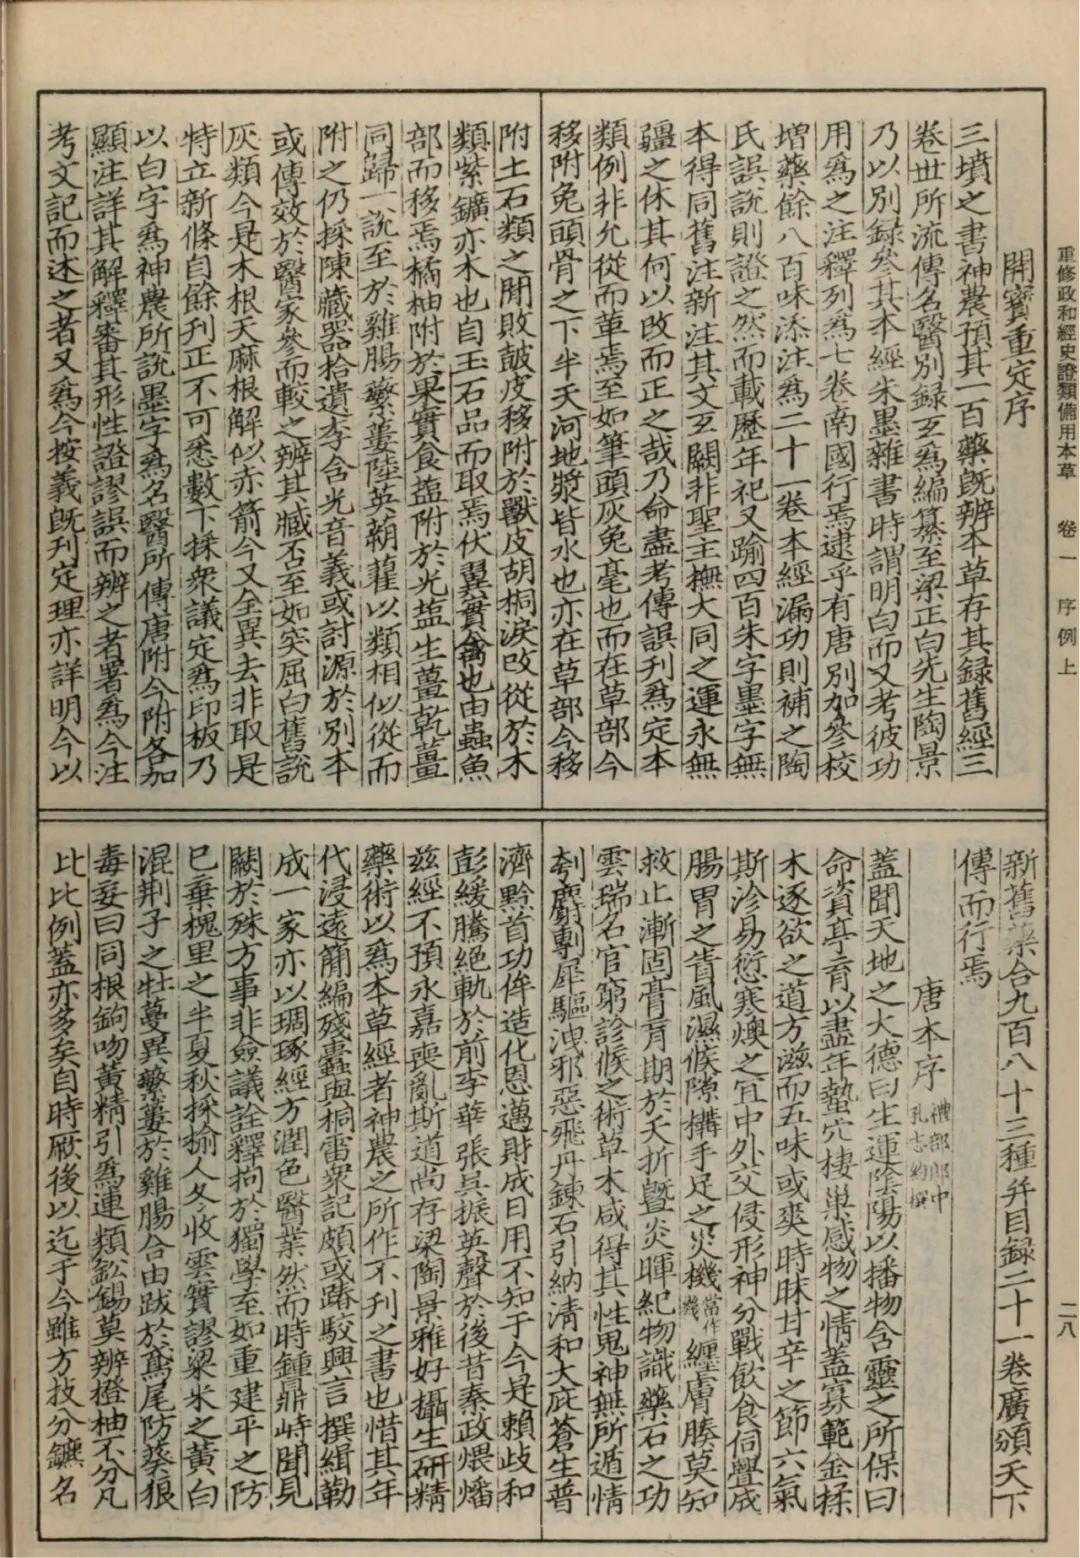 重修政和經史證類備用本草　卷一　序例上　二八
開寶重定序
三墳之書神農預其一百藥旣辨本草存其録舊經三
卷丗所流傳名醫別録互爲編纂至梁正白先生陶景
乃以別録叅其本經朱墨雜書時謂明白而又考彼功
用爲之注釋列爲七卷南國行焉逮乎有唐別加叅校
増藥餘八百味添注爲二十一卷本經漏功則補之陶
氏誤說則證之然而載歷年祀又踰四百朱字墨字無
本得同舊注新注其文互闕非聖主撫大同之運永無
疆之休其何以改而正之哉乃命盡考傳誤刊爲定本
類例非允從而革焉至如筆頭灰兔毫也而在草部今
移附兔頭骨之下半天河地漿皆水也亦在草部今移
附土石類之間敗皷皮移附於獸皮胡桐淚改從於木
類紫鑛亦木也自玉石品而取焉伏翼實禽也由蟲魚
部而移焉橘柚附於果實食塩附於光塩生薑乾薑
同歸一說至於雞腸蘩蔞陸英蒴藋以類相似從而
附之仍採陳藏器拾遺李含光音義或討源於別本
或傳效於醫家叅而較之辨其臧否至如突屈白舊說
灰類今是木根天麻根解似赤箭今又全異去非取是
特立新條自餘刊正不可悉數下採衆議定爲印板乃
以白字爲神農所說墨字爲名醫所傳唐附今附各加
顯注詳其解釋審其形性證謬誤而辨之者署爲今注
考文記而述之者又爲今按義旣刊定理亦詳明今以
新舊藥合九百八十三種并目録二十一卷廣頒天下
傳而行焉
唐本序 禮部郎中孔志約撰
蓋聞天地之大德曰生運隂陽以播物含靈之所保曰
命資亭育以盡年蟄穴棲巢感物之情蓋寡範金揉
木逐欲之道方滋而五味或爽時昧甘辛之節六氣
斯沴易愆寒燠之宜中外交侵形神分戰飲食伺舋成
腸胃之眚風濕候隙搆手足之災機當作幾纏膚腠莫知
救止漸固膏肓期於夭折曁炎暉紀物識藥石之功
雲瑞名官窮診候之術草木咸得其性鬼神無所遁情
刳麝剸犀驅洩邪惡飛丹鍊石引納清和大庇蒼生普
濟黔首功侔造化恩邁財成日用不知于今是賴歧和
彭緩騰絶軌於前李華張吳振英聲於後昔秦政煨燔
兹經不預永嘉喪亂斯道尚存梁陶景雅好攝生研精
藥術以爲本草經者神農之所作不刊之書也惜其年
代浸遠簡編殘蠹與桐雷衆記頗或踳駮興言撰緝勒
成一家亦以琱琢經方潤色醫業然而時鍾鼎峙聞見
闕於殊方事非僉議詮釋拘於獨學至如重建平之防
已棄槐里之半夏秋採榆人冬收雲實謬粱米之黄白
混荆子之牡蔓異蘩蔞於雞腸合由跋於鳶尾防葵狼
毒妄曰同根鉤吻黄精引爲連類鈆錫莫辨橙柚不分凡
此比例蓋亦多矣自時厥後以迄于今雖方技分鑣名